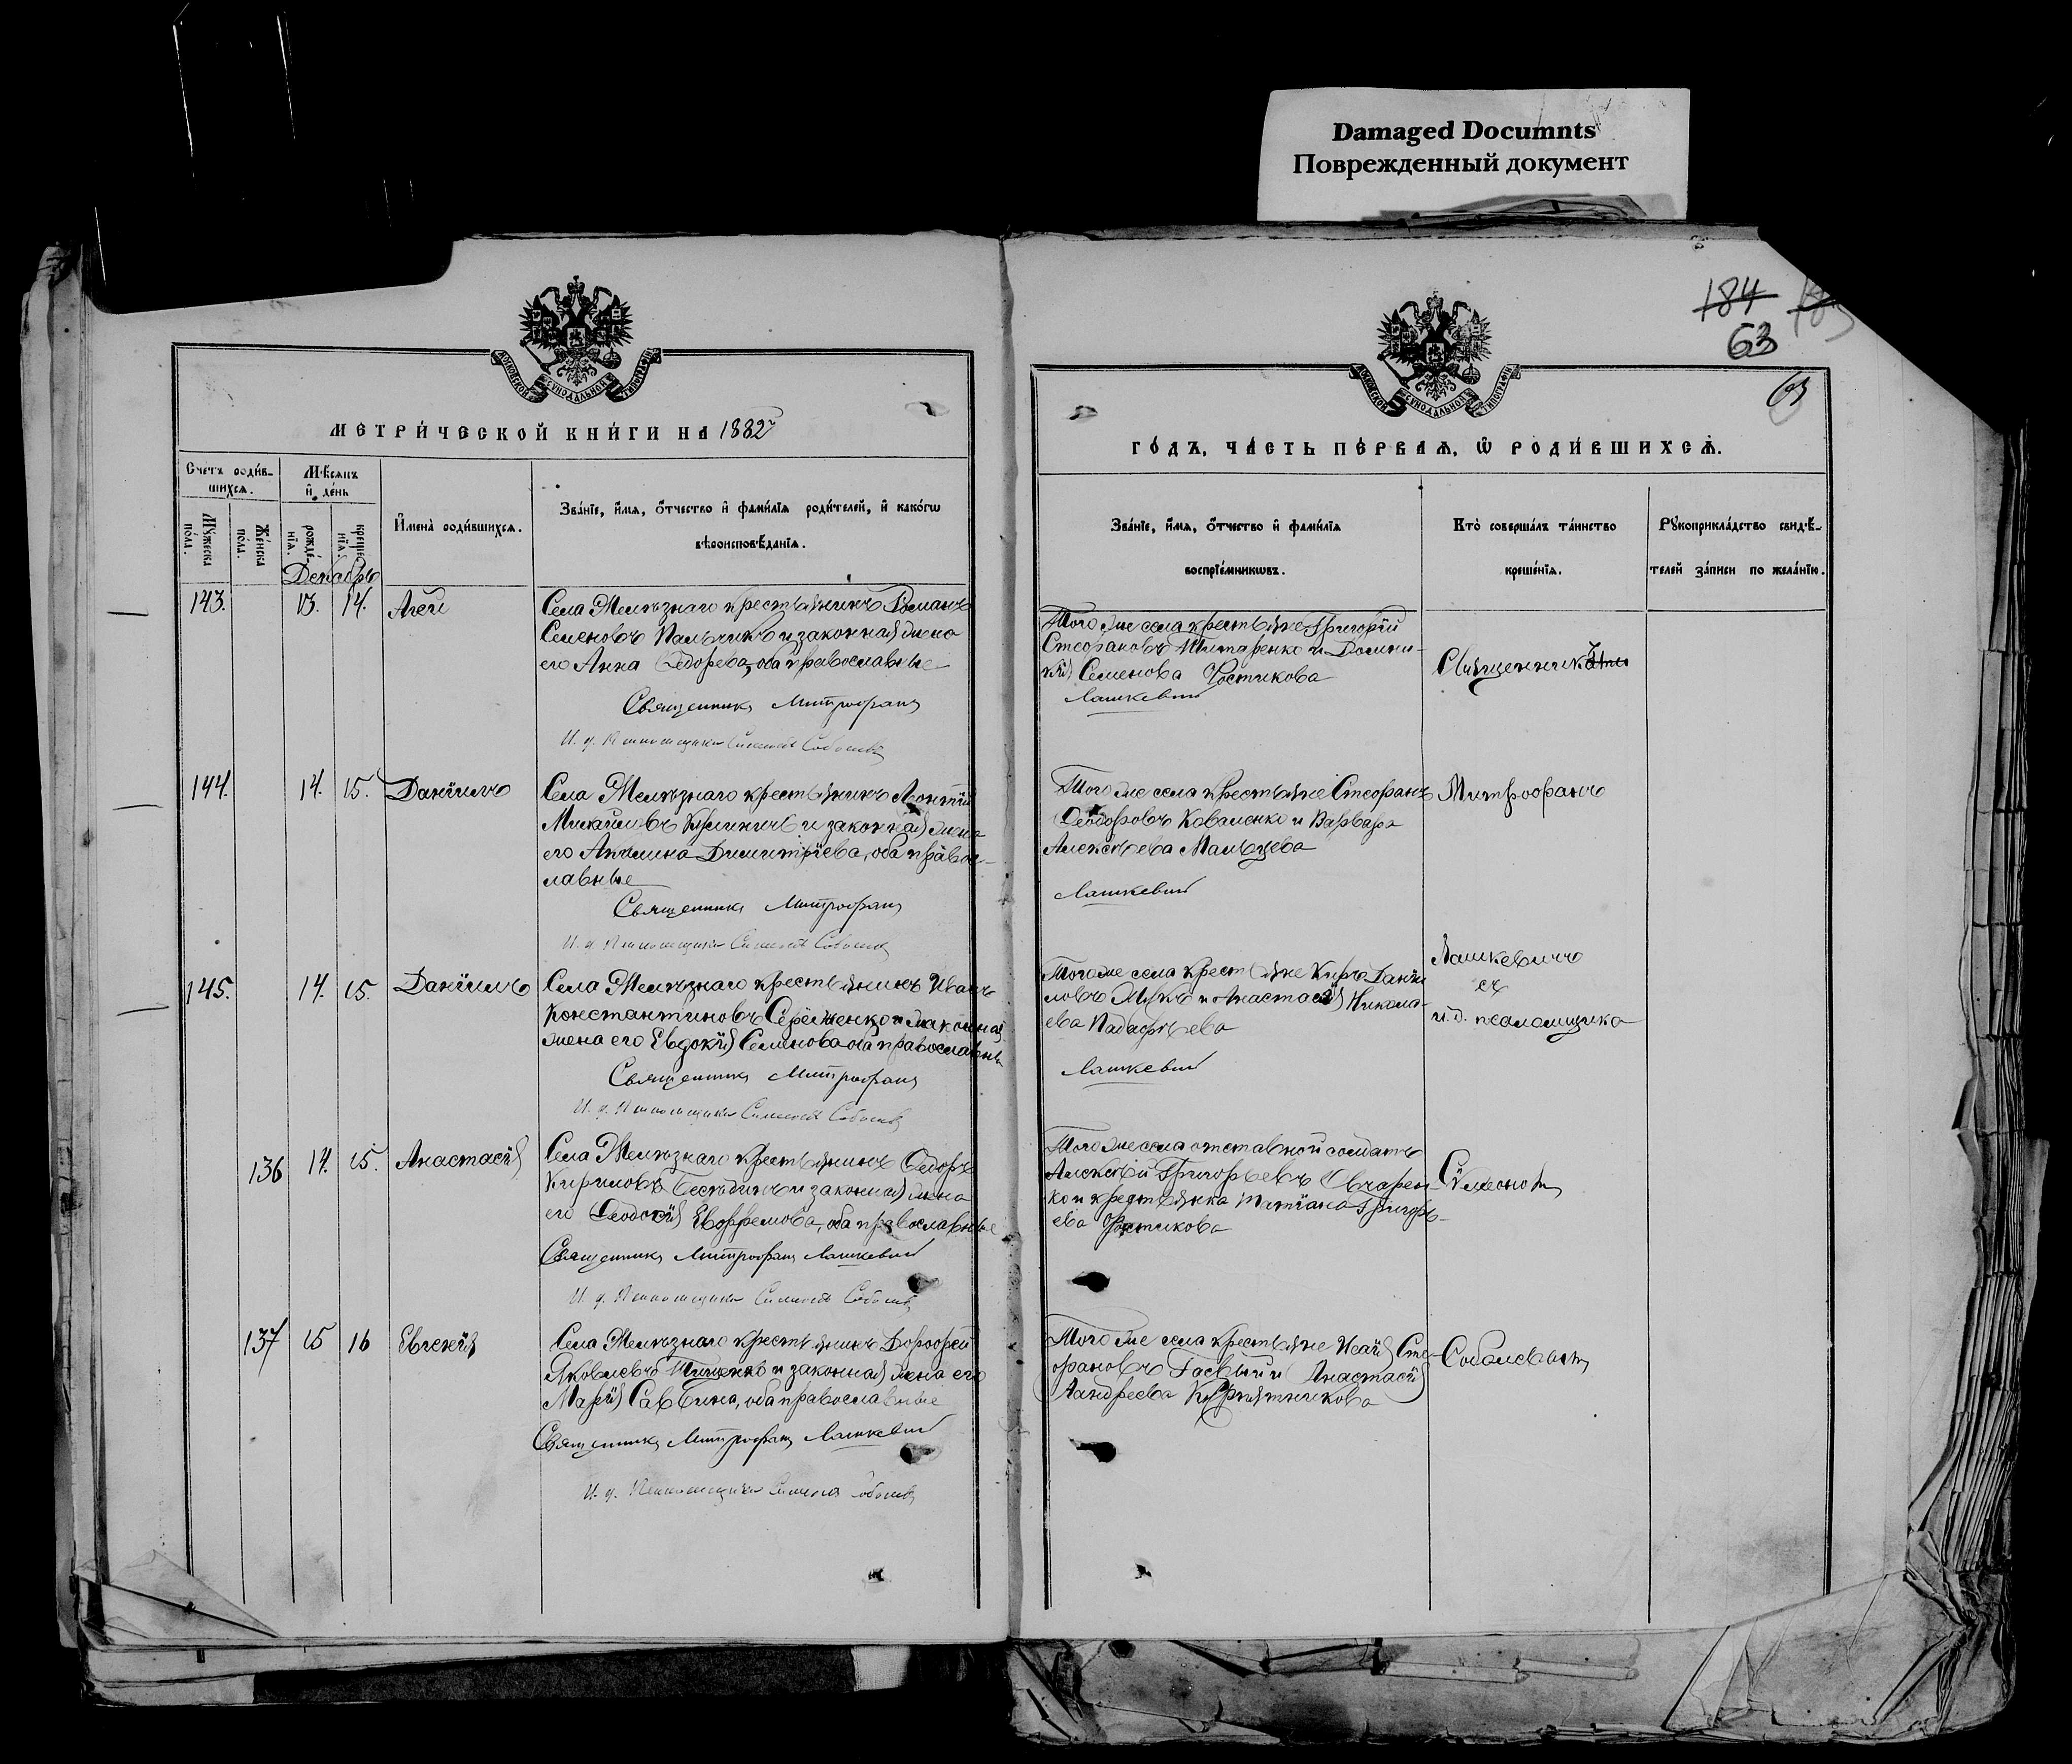 Damaged Documnts
Поврежденный документ
184
63
63
МОСКОВСКОЙ СѴНОДАЛЬНОЙ ТИПОГРАФІИ
МОСКОВСКОЙ СѴНОДАЛЬНОЙ ТИПОГРАФІИ
МЕТРИ́ЧЕСКОЙ КНИ́ГИ НА 1882
ГО́ДЪ, ЧА́СТЬ ПЕ́РВАѦ, Ѡ РОДИ́ВШИХСѦ.
Счетъ роди́в-
шихсѧ.
Мѣсѧцъ
и҆ де́нь
Мꙋжеска
пола.
Же́нска
пола.
рожде́
нїѧ.
креще́
нїѧ.
Декабрь
И҆мена̀ роди́вшихсѧ.
Зва́нїе, и҆́мѧ, ѻ҆́тчество и҆ фами́лїѧ роди́телей, и҆ како́гѡ
вѣроисповѣ́данїѧ.
Зва́нїе, и҆́мѧ, ѻ҆́тчество и҆ фами́лїѧ
воспрїе́мникѡвъ.
Кто̀ соверша́лъ та́инство
креще́нїѧ.
Рꙋкоприкла́дство свидѣ́-
телей за́писи по жела́нїю.
143. 13. 14. Агей
Села Желѣзнаго крестьянинъ Романъ
Семеновъ Пальчикъ и законная жена
его Анна Ѳедорова, оба православные
Священникъ Митрофанъ
И. д. Псаломщика Симеонъ Соболевъ
Того же села крестьяне Григорій
Стефановъ Титаренко и Домни-
кія Семенова Хостикова
Лашкевич
Священникъ
144. 14. 15. Даніилъ
Села Желѣзнаго крестьянинъ Леонтій
Михайловъ Куличичъ и законная жена
его Акилина Димитріева, оба правос-
лавные
Священникъ Митрофанъ
И. д. Псаломщика Симеонъ Соболевъ
Того же села крестьяне Стефанъ
Ѳеодоровъ Коваленко и Варвара
Алексѣева Мальцева
Лашкевич
Митрофанъ
145. 14. 15. Даніилъ
Села Желѣзнаго крестьянинъ Иванъ
Константиновъ Сергѣенко и законная
жена его Евдокія Семенова оба православны
Священникъ Митрофанъ
И. д. Псаломщика Симеонъ Соболевъ
Того же села крестьяне Киръ Даніи
ловъ Жукъ и Анастасія Никола-
ева
Лашкевич
Лашкевичъ
съ
и. д. псаломщика
136 14. 15. Анастасія
Села Желѣзнаго крестьянинъ Ѳедоръ
Кириловъ Бесѣдинъ и законная жена
его Ѳеодосія Евфремова, оба православные
Священникъ Митрофанъ Лашкевич
И. д. Псаломщика Симеонъ Соболевъ
Того же села отставной солдатъ
Алексѣй Григорьевъ Овчарен-
ко и крестьянка Татіана Григорь-
ева Хостикова
Сѵмеономъ
137 15 16 Евгенія
Села Желѣзнаго крестьянинъ Дорофей
Яковлевъ Тищенко и законная жена его
Марія Саввина, оба православные
Священникъ Митрофанъ Лашкевич
И. д. Псаломщика Симеонъ Соболевъ
Того же села крестьяне Исаія Сте-
фановъ Гаевый и Анастасія
Андреева Курпятникова
Соболевымъ